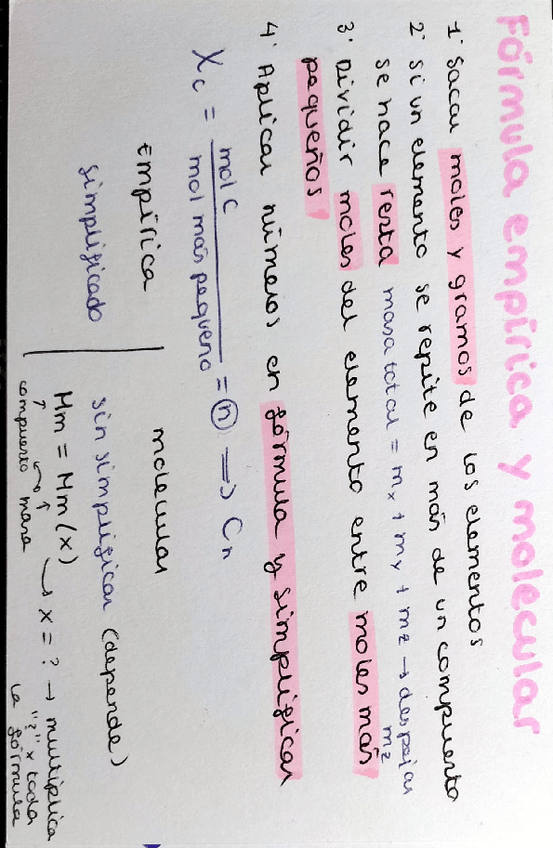 Fórmula empírica y molecular
1º Sacar moles y gramos de los elementos
2º Si un elemento se repite en más de un compuesto
se hace resta masa total = mx + my + mz → despejar
mz
3º Dividir moles del elemento entre moles más
pequeños
4º Aplicar números en fórmula y simplificar
Xc = mol c / mol más pequeño = n ⟹ Cn
Empírica
simplificado
molecular
sin simplificar (depende)
Mm = Mm (x) → x = ? → multiplica
"?" x toda
la fórmula
compuesto masa